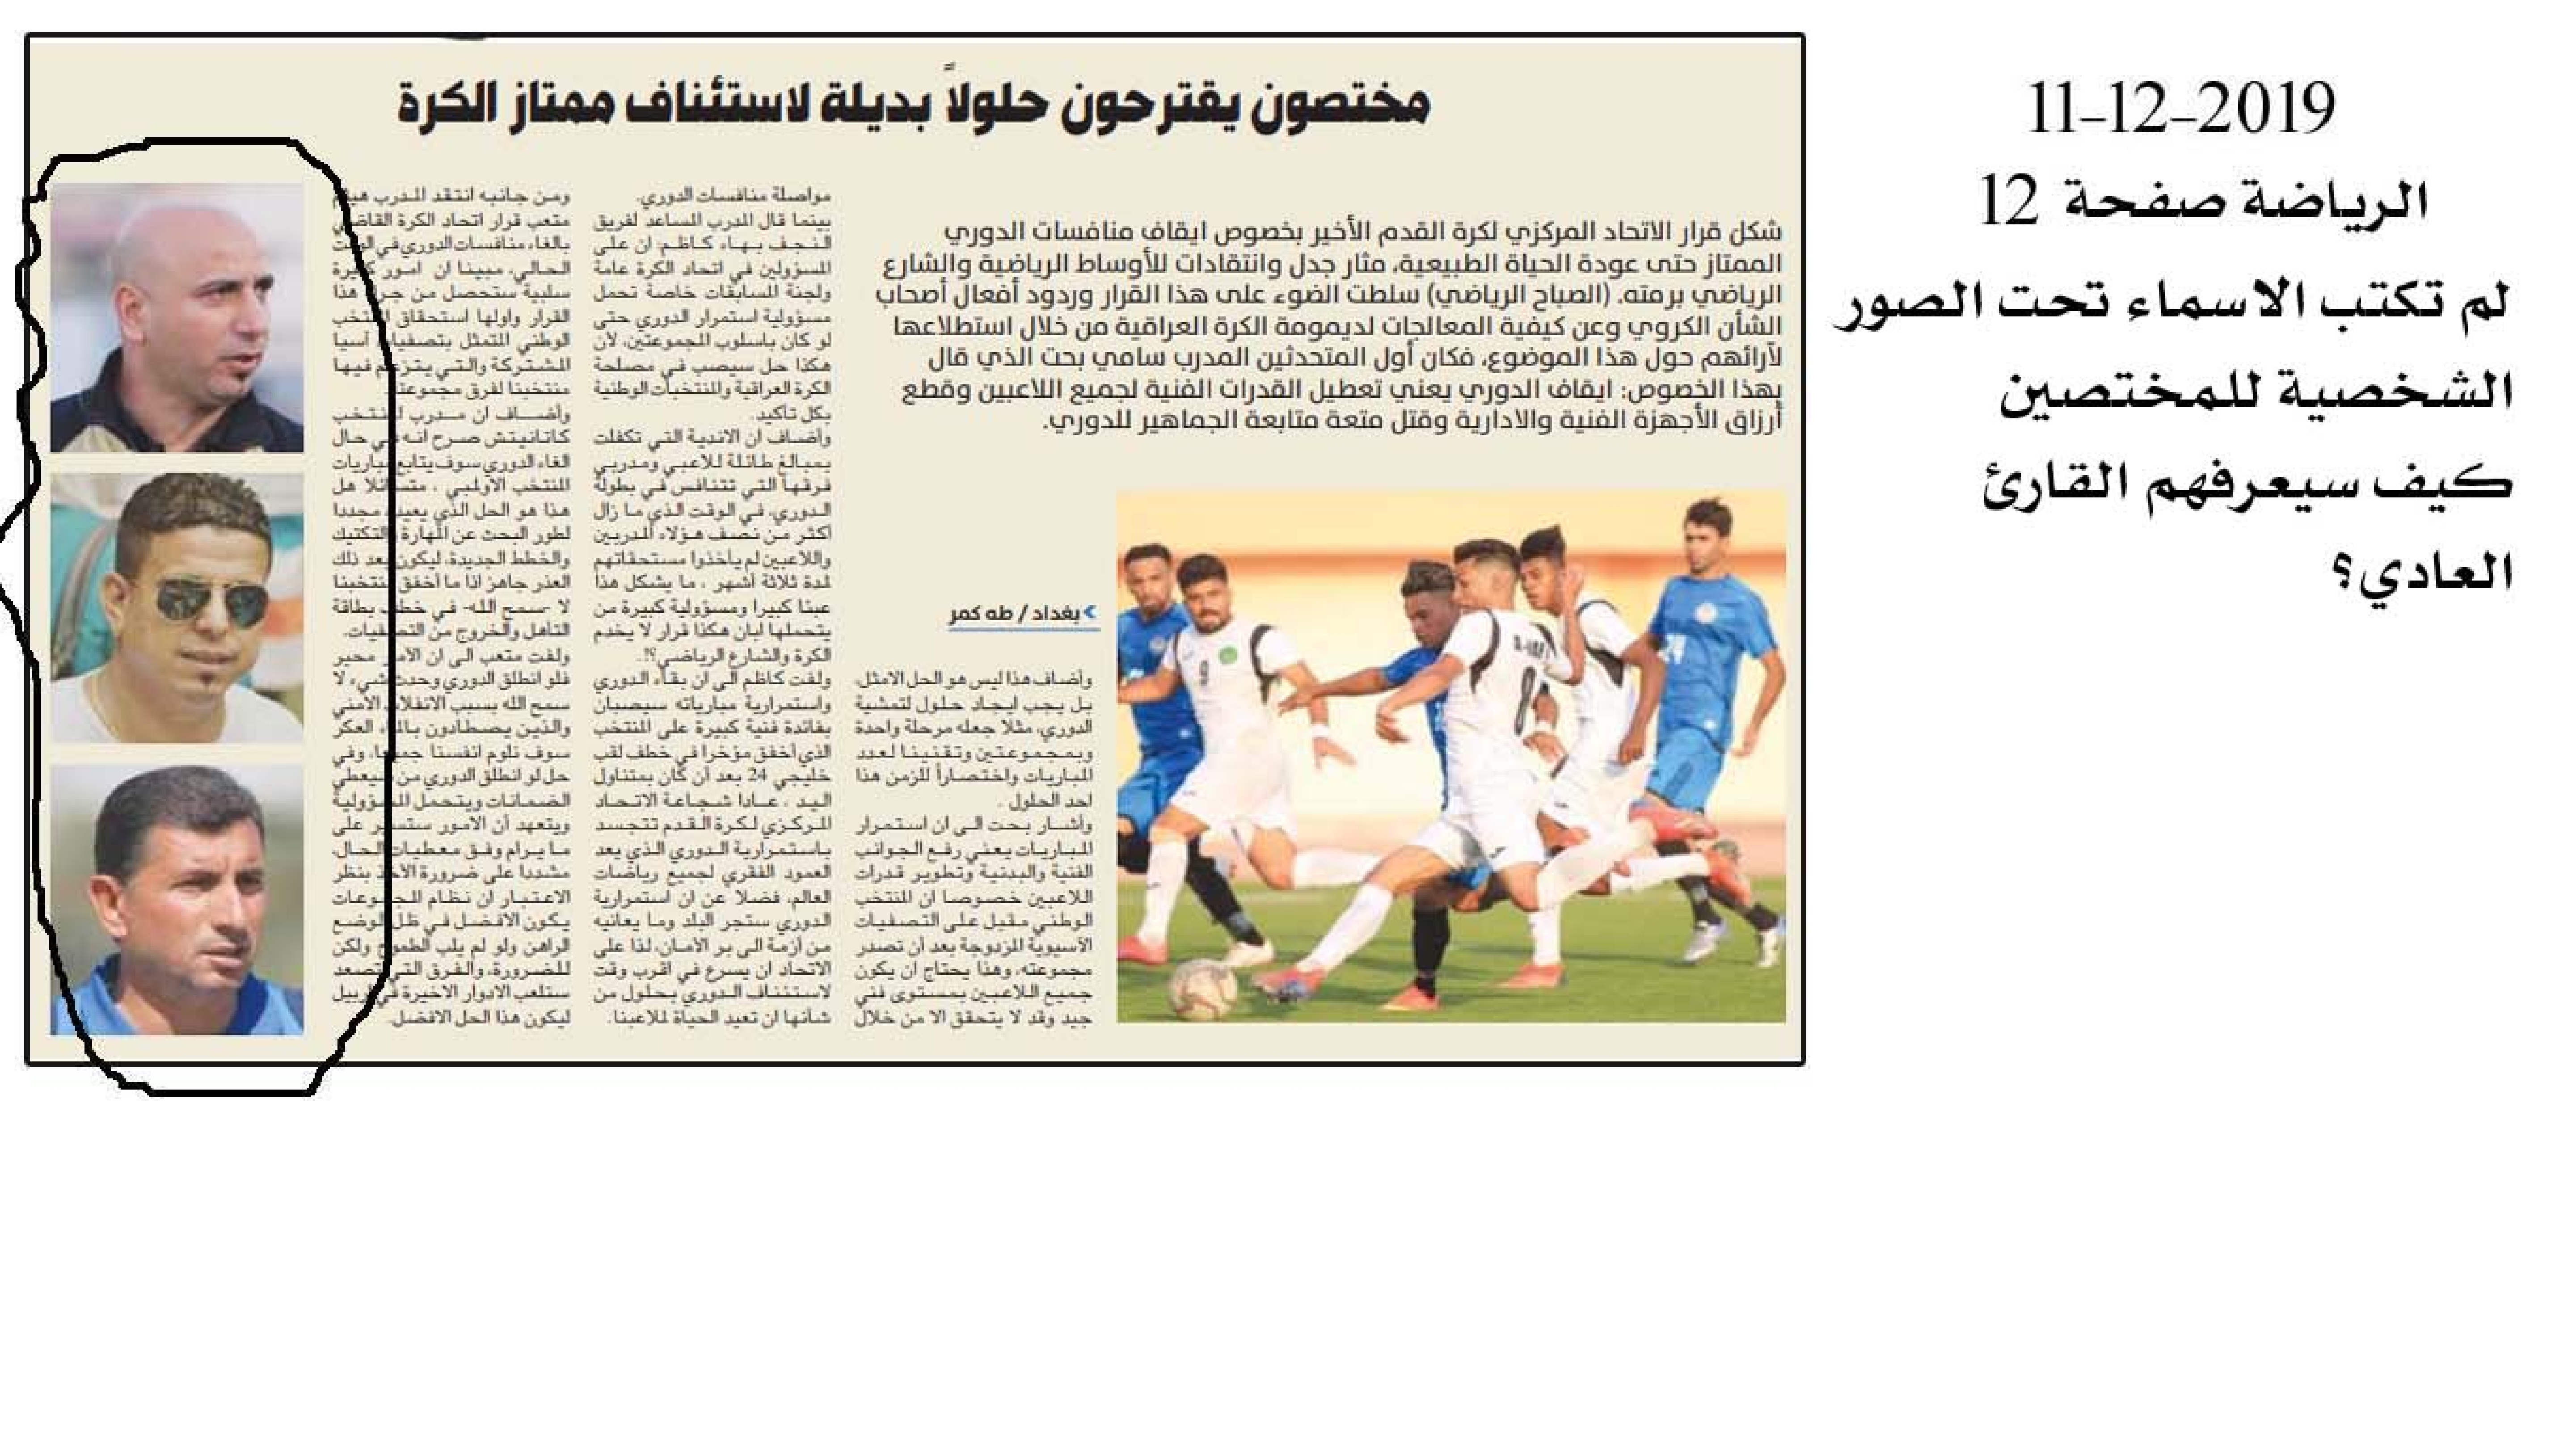 11-12-2019
الرياضة صفحة 12
لم تكتب الاسماء تحت الصور
الشخصية للمختصين
كيف سيعرفهم القارئ
العادي؟
مختصون يقترحون حلولاً بديلة لاستئناف ممتاز الكرة
شكل قرار الاتحاد المركزي لكرة القدم الأخير بخصوص ايقاف منافسات الدوري
الممتاز حتى عودة الحياة الطبيعية، مثار جدل وانتقادات للأوساط الرياضية والشارع
الرياضي برمته. (الصباح الرياضي) سلطت الضوء على هذا القرار وردود أفعال أصحاب
الشأن الكروي وعن كيفية المعالجات لديمومة الكرة العراقية من خلال استطلاعها
لآرائهم حول هذا الموضوع، فكان أول المتحدثين المدرب سامي بحت الذي قال
بهذا الخصوص: ايقاف الدوري يعني تعطيل القدرات الفنية لجميع اللاعبين وقطع
أرزاق الأجهزة الفنية والادارية وقتل متعة متابعة الجماهير للدوري.
بغداد / طه كمر
وأضاف هذا ليس هو الحل الامثل،
بل يجب ايجاد حلول لتمشية
الدوري، مثلا جعله مرحلة واحدة
وبمجموعتين وتقنينا لعدد
المباريات واختصاراً للزمن هذا
احد الحلول .
وأشار بحت الى ان استمرار
المباريات يعني رفع الجوانب
الفنية والبدنية وتطوير قدرات
اللاعبين خصوصا ان المنتخب
الوطني مقبل على التصفيات
الآسيوية المزدوجة بعد أن تصدر
مجموعته، وهذا يحتاج ان يكون
جميع اللاعبين بمستوى فني
جيد وقد لا يتحقق الا من خلال
مواصلة منافسات الدوري.
بينما قال المدرب المساعد لفريق
النجف بهاء كاظم: ان على
المسؤولين في اتحاد الكرة عامة
ولجنة المسابقات خاصة تحمل
مسؤولية استمرار الدوري حتى
لو كان باسلوب المجموعتين، لأن
هكذا حل سيصب في مصلحة
الكرة العراقية والمنتخبات الوطنية
بكل تأكيد.
وأضاف ان الاندية التي تكفلت
بمبالغ طائلة للاعبي ومدربي
فرقها التي تتنافس في بطولة
الدوري، في الوقت الذي ما زال
أكثر من نصف هؤلاء المدربين
واللاعبين لم يأخذوا مستحقاتهم
لمدة ثلاثة أشهر ، ما يشكل هذا
عبئا كبيرا ومسؤولية كبيرة من
يتحملها ابان هكذا قرار لا يخدم
الكرة والشارع الرياضي؟!.
ولفت كاظم الى ان بقاء الدوري
واستمرارية مبارياته سيصبان
بفائدة فنية كبيرة على المنتخب
الذي أخفق مؤخرا في خطف لقب
خليجي 24 بعد أن كان بمتناول
اليد ، عادا شجاعة الاتحاد
المركزي لكرة القدم تتجسد
باستمرارية الدوري الذي يعد
العمود الفقري لجميع رياضات
العالم، فضلا عن ان استمرارية
الدوري ستجر البلد وما يعانيه
من أزمة الى بر الأمان، لذا على
الاتحاد ان يسرع في اقرب وقت
لاستئناف الدوري بحلول من
شأنها ان تعيد الحياة لملاعبنا.
ومن جانبه انتقد المدرب هيثم
متعب قرار اتحاد الكرة القاضي
بالغاء منافسات الدوري في الوقت
الحالي، مبينا ان امور كثيرة
سلبية ستحصل من جراء هذا
القرار واولها استحقاق المنتخب
الوطني المتمثل بتصفيات آسيا
المشتركة والتي يتزعم فيها
منتخبنا لفرق مجموعته.
وأضاف ان مدرب المنتخب
كاتانيتش صرح انه في حال
الغاء الدوري سوف يتابع مباريات
المنتخب الاولمبي ، متسائلا هل
هذا هو الحل الذي يعيد مجددا
لطور البحث عن المهارة والتكتيك
والخطط الجديدة، ليكون بعد ذلك
العذر جاهز اذا ما أخفق منتخبنا
لا -سمح الله- في خطف بطاقة
التأهل والخروج من التصفيات.
ولفت متعب الى ان الامر محير
فلو انطلق الدوري وحدث شيء لا
سمح الله بسبب الانفلات الأمني
والذين يصطادون بالماء العكر
سوف نلوم انفسنا جميعا، وفي
حل لو انطلق الدوري من سيعطي
الضمانات ويتحمل المسؤولية
ويتعهد أن الامور ستسير على
ما يرام وفق معطيات الحال،
مشددا على ضرورة الأخذ بنظر
الاعتبار ان نظام المجموعات
يكون الافضل في ظل الوضع
الراهن ولو لم يلب الطموح ولكن
للضرورة، والفرق التي تصعد
ستلعب الادوار الاخيرة في اربيل
ليكون هذا الحل الافضل.